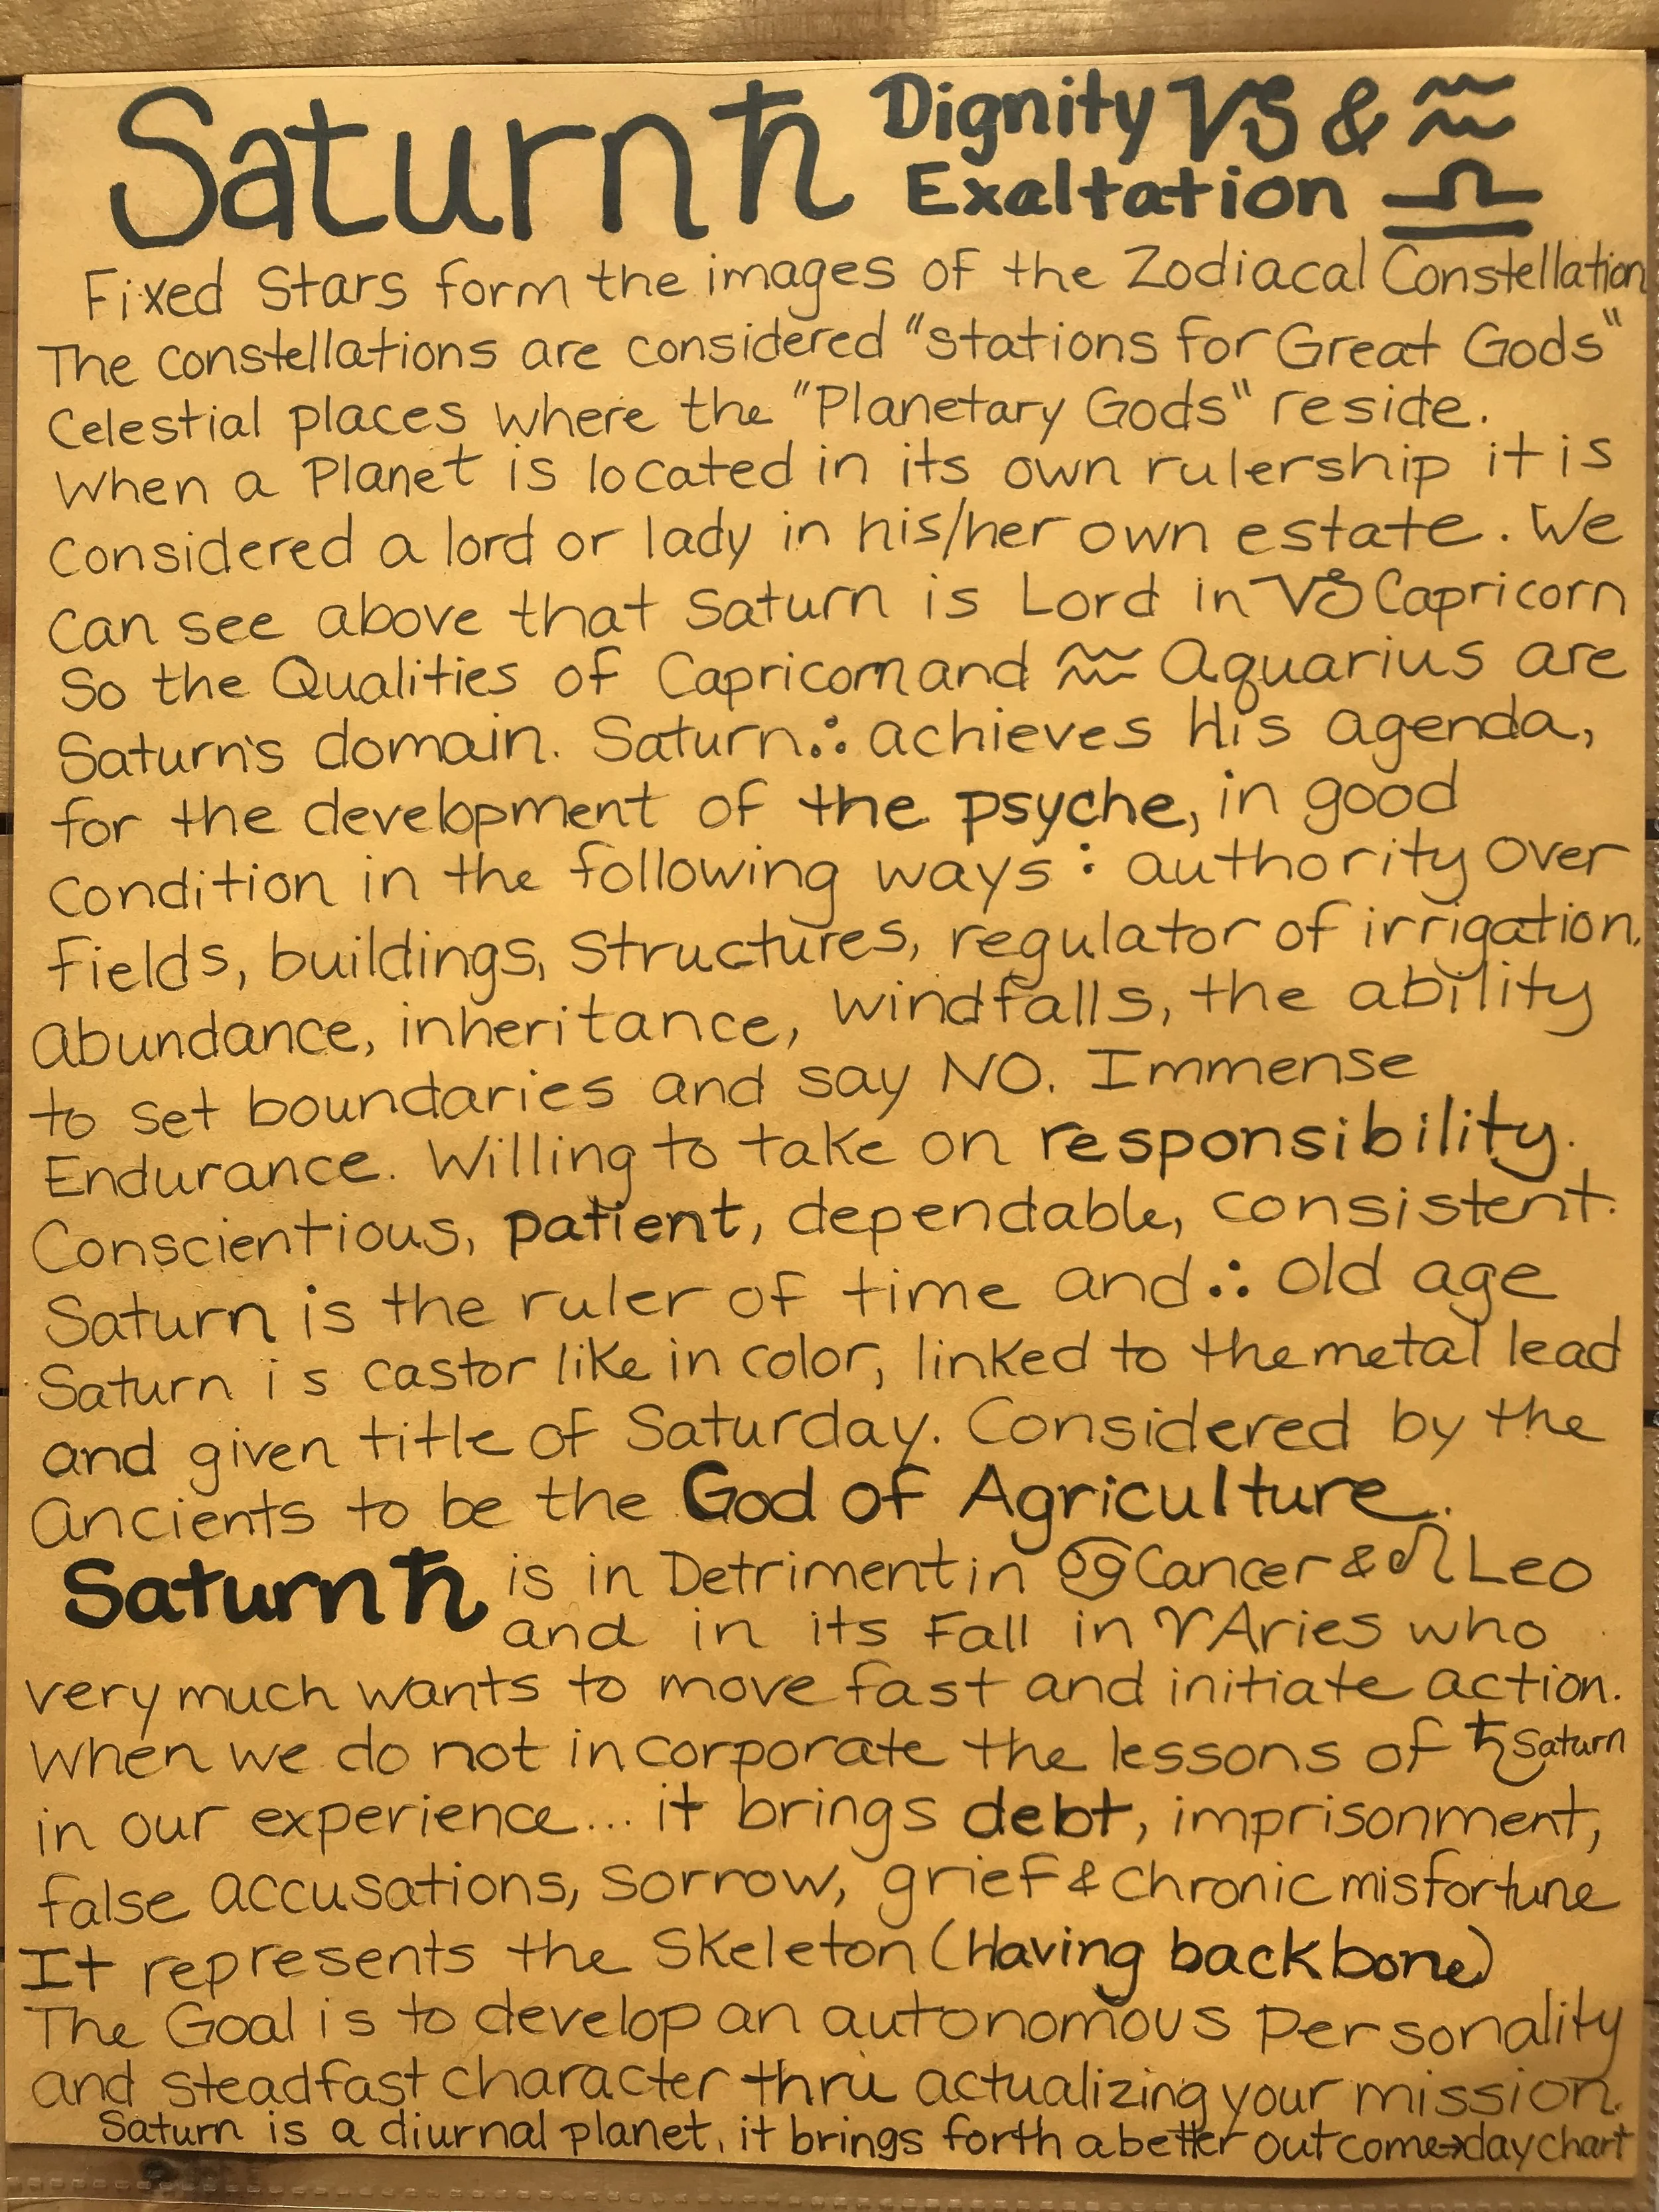 Saturn ♄ Dignity ♑ & ♒
Exaltation ♎
Fixed Stars form the images of the Zodiacal Constellation
The constellations are considered "stations for Great Gods"
Celestial places where the "Planetary Gods" reside.
When a Planet is located in its own rulership it is
Considered a lord or lady in his/her own estate. We
can see above that Saturn is Lord in ♑ Capricorn
So the Qualities of Capricorn and ♒ Aquarius are
Saturn's domain. Saturn ∴ achieves His agenda,
for the development of the psyche, in good
condition in the following ways: authority over
fields, buildings, structures, regulator of irrigation,
abundance, inheritance, windfalls, the ability
to set boundaries and say NO. Immense
Endurance. Willing to take on responsibility.
Conscientious, patient, dependable, consistent.
Saturn is the ruler of time and ∴ old age
Saturn is castor like in color, linked to the metal lead
and given title of Saturday. Considered by the
ancients to be the God of Agriculture.
Saturn ♄ is in Detriment in ♋ Cancer & ♌ Leo
and in its Fall in ♈ Aries who
very much wants to move fast and initiate action.
When we do not incorporate the lessons of ♄ Saturn
in our experience... it brings debt, imprisonment,
false accusations, sorrow, grief & chronic misfortune
It represents the Skeleton (Having backbone)
The Goal is to develop an autonomous personality
and steadfast character thru actualizing your mission.
Saturn is a diurnal planet, it brings forth a better outcome→day chart